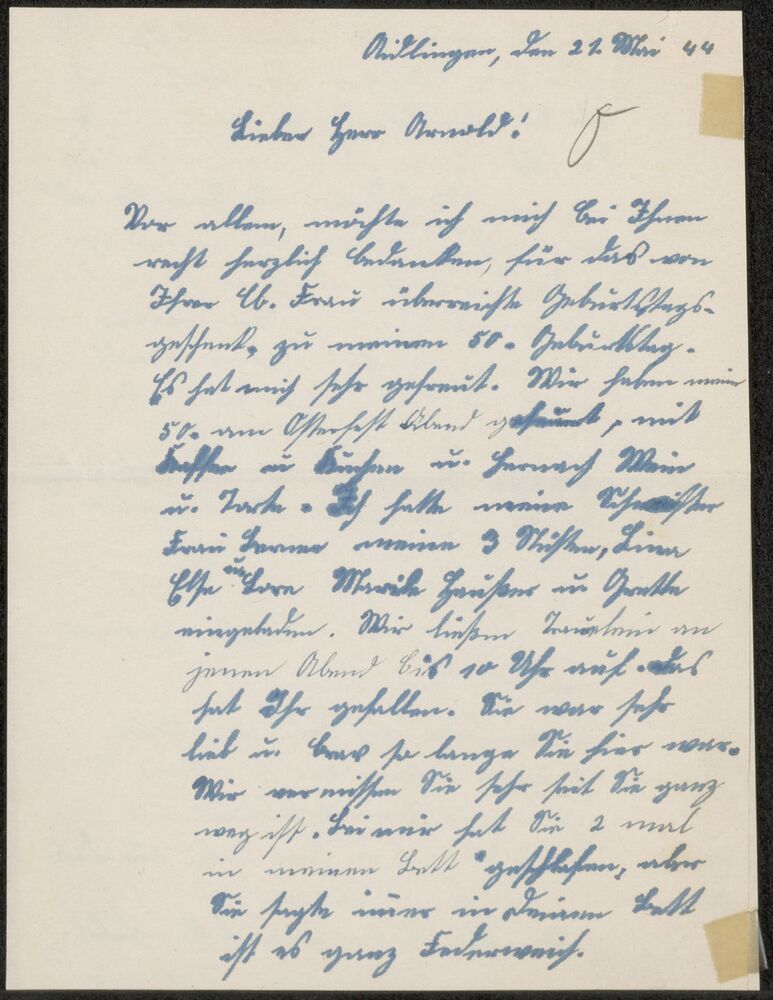 Aidlingen, den 21. Mai 44
Lieber Herr Arnold!
Vor allem, möchte ich mich bei Ihnen
recht herzlich bedanken, für das von
Ihrer lb. Frau überreichte Geburtstags-
geschenk, zu meinem 50. Geburtstag.
Es hat mich sehr gefreut. Wir haben mein
50. am Osterfest Abend gefeiert, mit
Kaffee u Kuchen u. hernach Wein
u. Torte. Ich hatte meine Schwester
Frau meine 3 Nichten, Lina
Else u. Lore Häußer u Grette
eingeladen. Wir ließen an
jenen Abend bis 10 Uhr auf. Das
hat Ihr gefallen. Sie war sehr
lieb u. brav so lange Sie hier war.
Wir vermissen Sie sehr seit Sie ganz
weg ist. Bei mir hat Sie 2 mal
in meinen Bett geschlafen, aber
Sie sagte im̅er in Deinem Bett
ist es ganz Federweich.